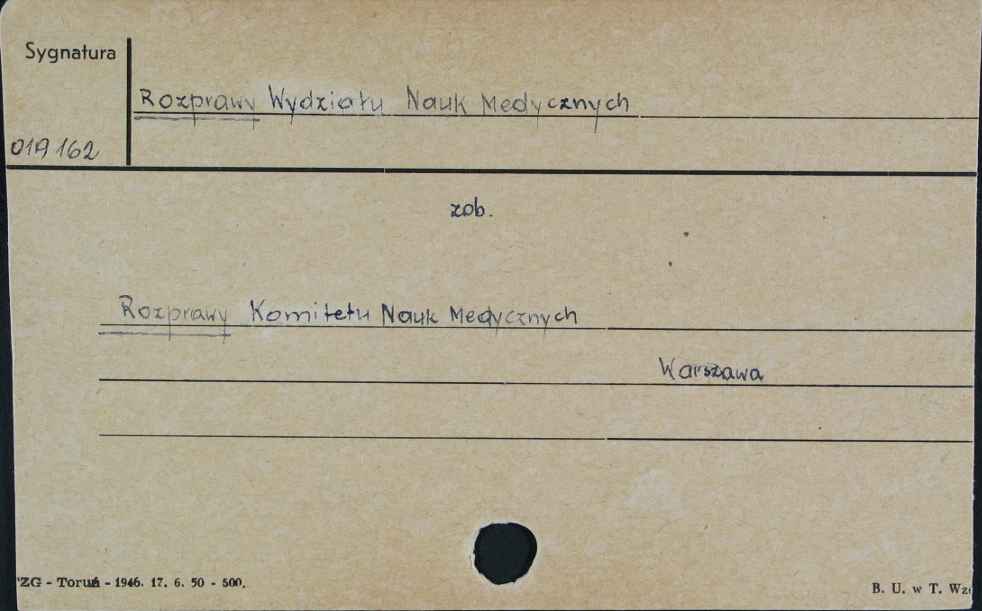 Sygnatura
Rozprawy Wydziału Nauk Medycznych
019162
zob.
Rozprawy Komitetu Nauk Medycznych
Warszawa
ZG - Toruń - 1946. 17. 6. 50 - 500.
B. U. w T. Wz